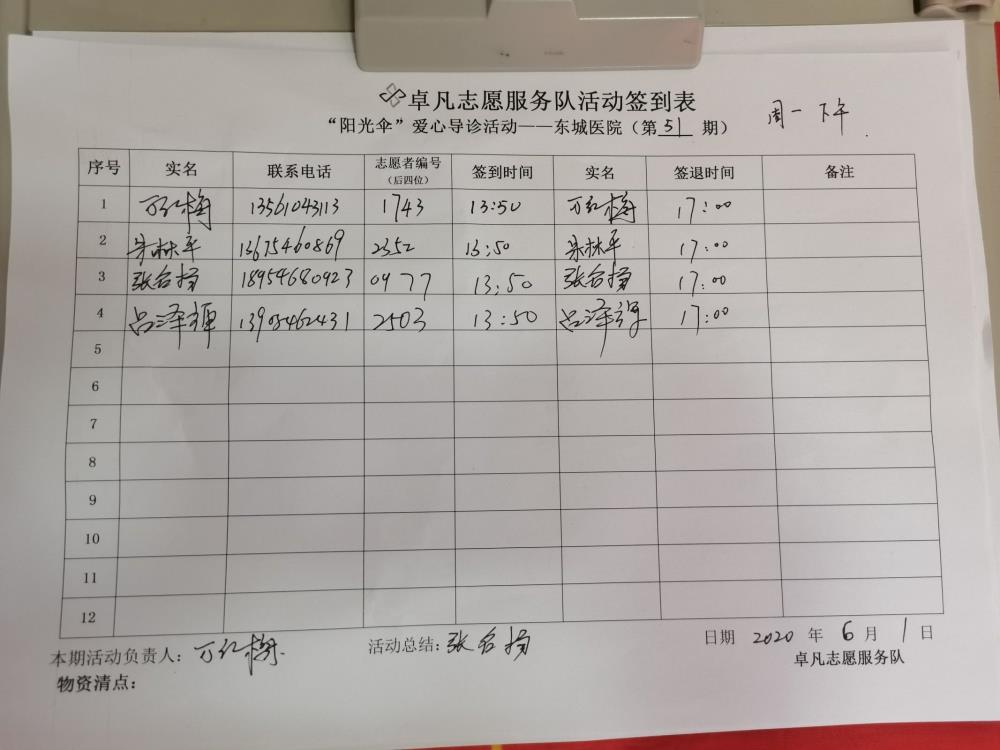 卓凡志愿服务队活动签到表
“阳光伞”爱心导诊活动——东城医院（第 51 期） 周一 下午.
序号 实名 联系电话 志愿者编号（后四位） 签到时间 实名 签退时间 备注
1 万红梅 13561043113 1743 13:50 万红梅 17:00
2 朱林平 13675460869 2352 13:50 朱林平 17:00
3 张名扬 18954680923 0977 13:50 张名扬 17:00
4 吕泽 13905462431 2503 13:50 吕泽 17:00
5
6
7
8
9
10
11
12
本期活动负责人：万红梅. 活动总结：张名扬 日期 2020 年 6 月 1 日
卓凡志愿服务队
物资清点：